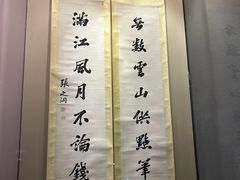 無數雲山供點筆
滿江風月不論錢
張之洞